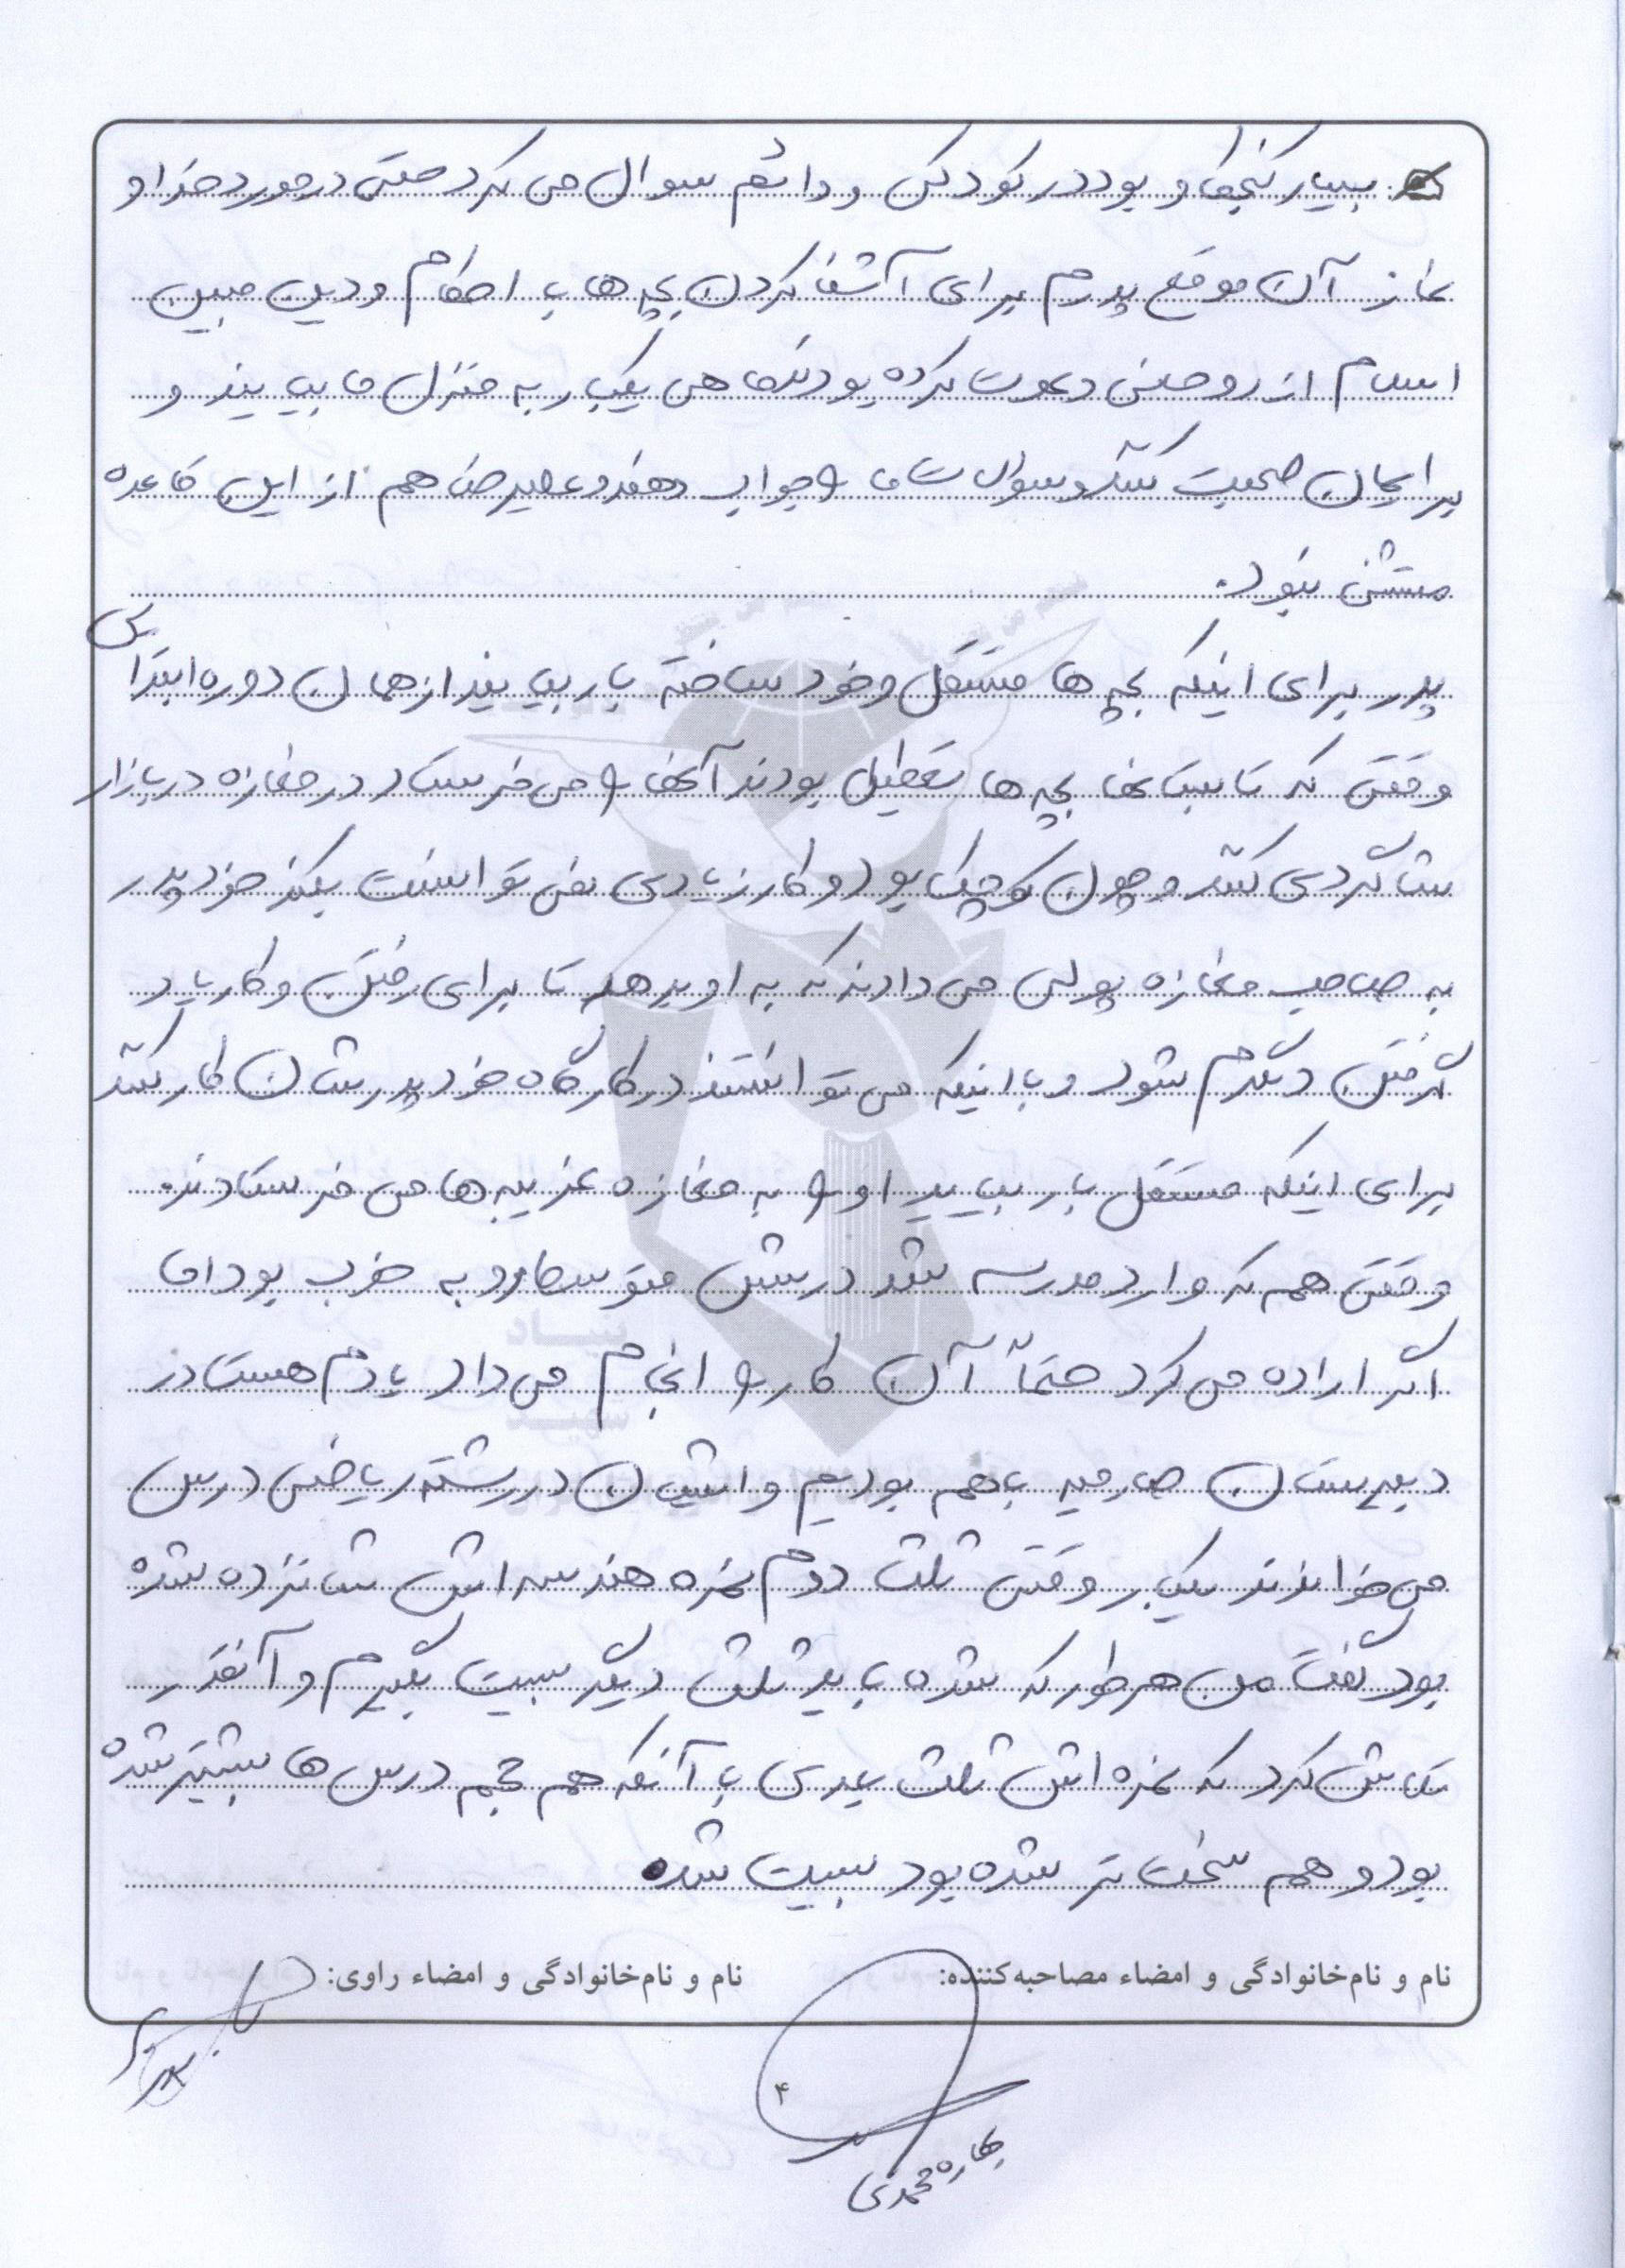 بسیار کنجکاو بود در کودکی و دائم سوال می کرد حتی در مورد خدا و
نماز آن موقع پدرم برای آشنا کردن بچه ها با احکام و دین مبین
اسلام از روحانی دعوت کرده بودند ماهی یکبار به منزل ما بیایند و
برایمان صحبت کنند و سوالات ما را جواب دهند و علیرضا هم از این قاعده
مستثنی نبود.
پدر برای اینکه بچه ها مستقل و خود ساخته بار بیایند از همان دوره ابتدایی
وقتی که تابستانها بچه ها تعطیل بودند آنها را می فرستاد در مغازه در بازار
شاگردی کنند و چون کوچک بود و کار زیادی نمی توانست بکند خود پدر
به صاحب مغازه پولی می دادند که به او بدهد تا برای رفتن و کار یاد
گرفتن دلگرم شود و با اینکه می توانستند در کارگاه خود پدرشان کار کنند
برای اینکه مستقل بار بیاید او را به مغازه غریبه ها می فرستادند.
وقتی هم که وارد مدرسه شد درسش متوسط رو به خوب بود اما
اگر اراده می کرد حتماً آن کار را انجام می داد یادم هست در
دبیرستان صارمیه با هم بودیم و ایشان در رشته ریاضی درس
می خواندند یکبار وقتی ثلث دوم نمره هندسه اش شانزده شده
بود گفت من هر طور که شده باید ثلث دیگر بیست بگیرم و آنقدر
تلاش کرد که نمره اش ثلث بعدی با آنکه هم حجم درس ها بیشتر شده
بود و هم سخت تر شده بود بیست شد.
نام و نام‌خانوادگی و امضاء مصاحبه‌کننده:
نام و نام‌خانوادگی و امضاء راوی:
۴
بهاره محمدی